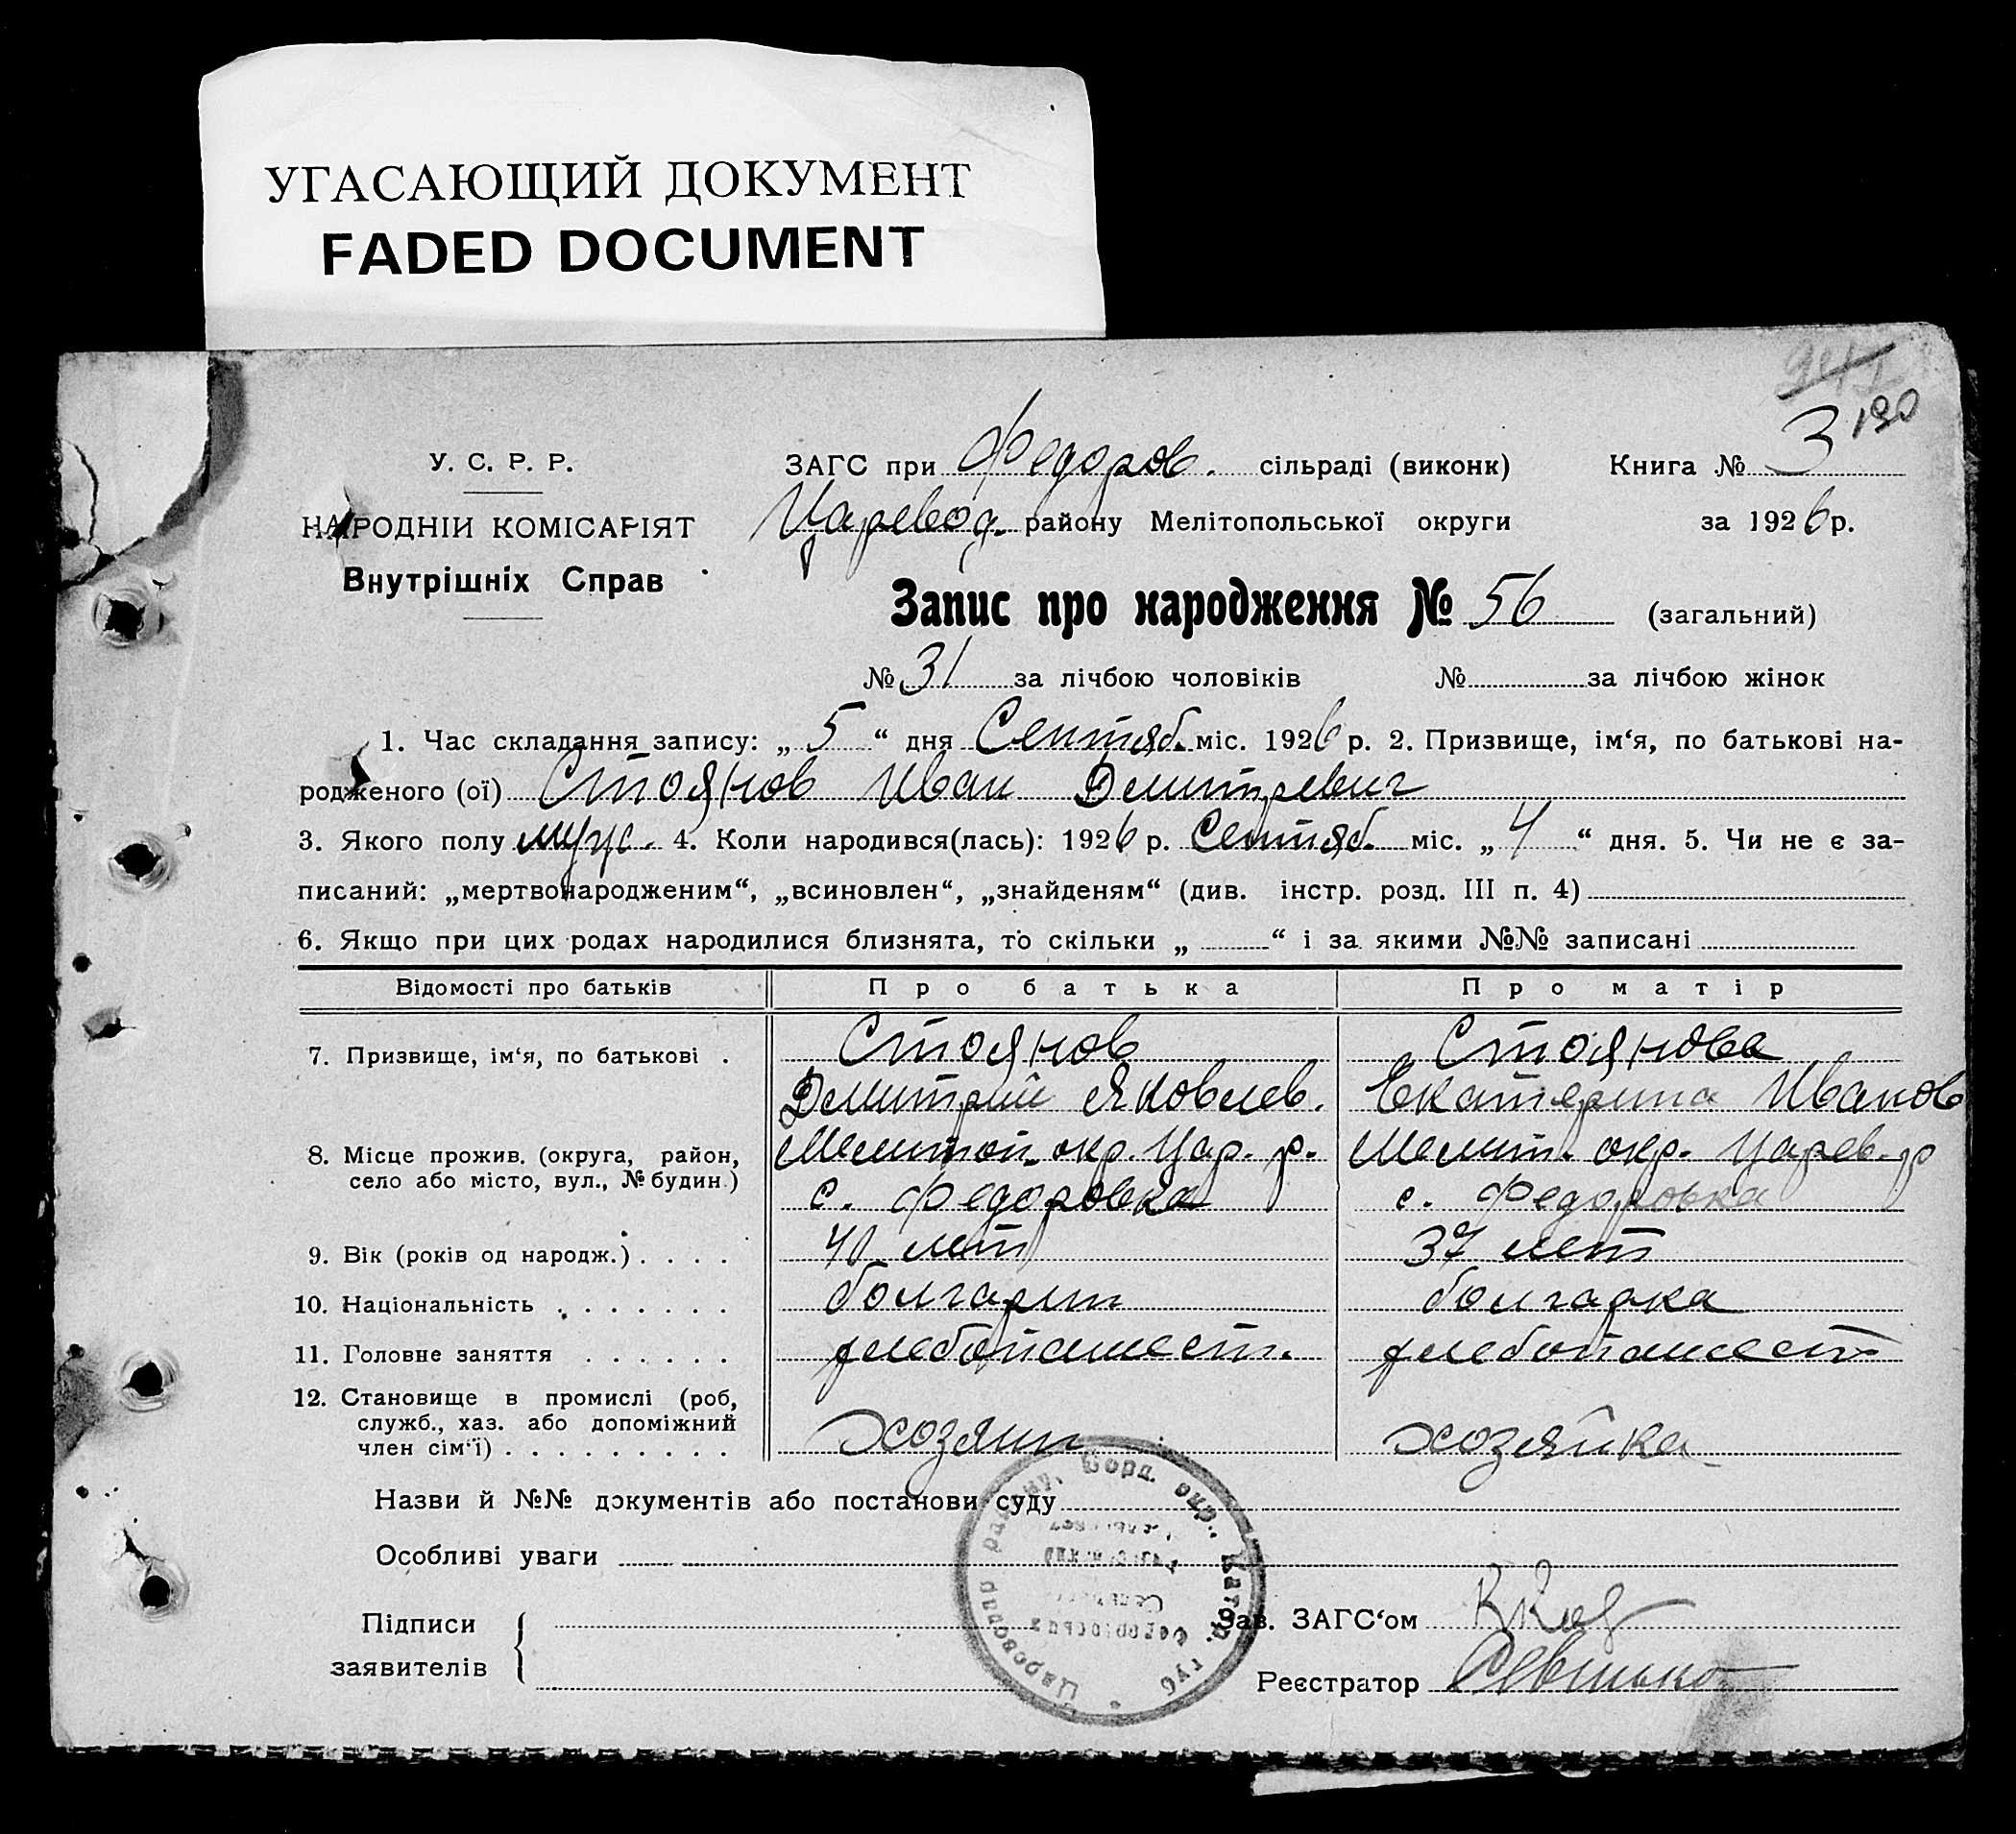 УГАСАЮЩИЙ ДОКУМЕНТ
FADED DOCUMENT
190
У. С. Р. Р.
ЗАГС при Федоров. сільраді (виконк)
Книга № 3
НАРОДНІЙ КОМІСАРІЯТ
Царевод. району Мелітопольської округи
за 1926 р.
Внутрішніх Справ
Запис про народження № 56 (загальний)
№ 31 за лічбою чоловіків № за лічбою жінок
1. Час складання запису: „ 5 “ дня Сентяб. міс. 1926 р. 2. Призвище, ім‘я, по батькові на-
родженого (ої) Стоянов Иван Дмитревич
3. Якого полу муж. 4. Коли народився(лась): 1926 р. Сентяб. міс. „ 4 “ дня. 5. Чи не є за-
писаний: „мертвонародженим“, „всиновлен“, „знайденям“ (див. інстр. розд. III п. 4)
6. Якщо при цих родах народилися близнята, то скільки „ “ і за якими №№ записані
Відомості про батьків Про батька Про матір
7. Призвище, ім‘я, по батькові . Стоянов Стоянова
Дмитрий Яковлев. Екатерина Иванов
8. Місце прожив. (округа, район, Мелитоп. окр. Цар. р. Мелит. окр. Царев. р
село або місто, вул., № будин.) с. Федоровка с. Федоровка
9. Вік (років од народж.) . . . . 40 лет 37 лет
10. Національність . . . . . . . болгарин болгарка
11. Головне заняття . . . . . . хлебопашест. хлебопашест
12. Становище в промислі (роб,
служб., хаз. або допоміжний
член сім‘ї) . . . . . . . . . хозяин хозяйка
Назви й №№ документів або постанови суду
Особливі уваги
Підписи
заявителів
Зав. ЗАГС‘ом
Реєстратор